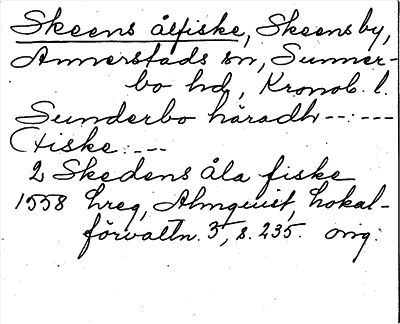 Skeens ålfiske, Skeens by,
Annerstads sn, Sunner-
bo hd, Kronob. l.
Sunderbo häradh --: ---
(Fiske: ---
2 Skedens åla fiske
1558 hreg, Almquist, Lokal-
förvaltn. 3, s. 235. orig.